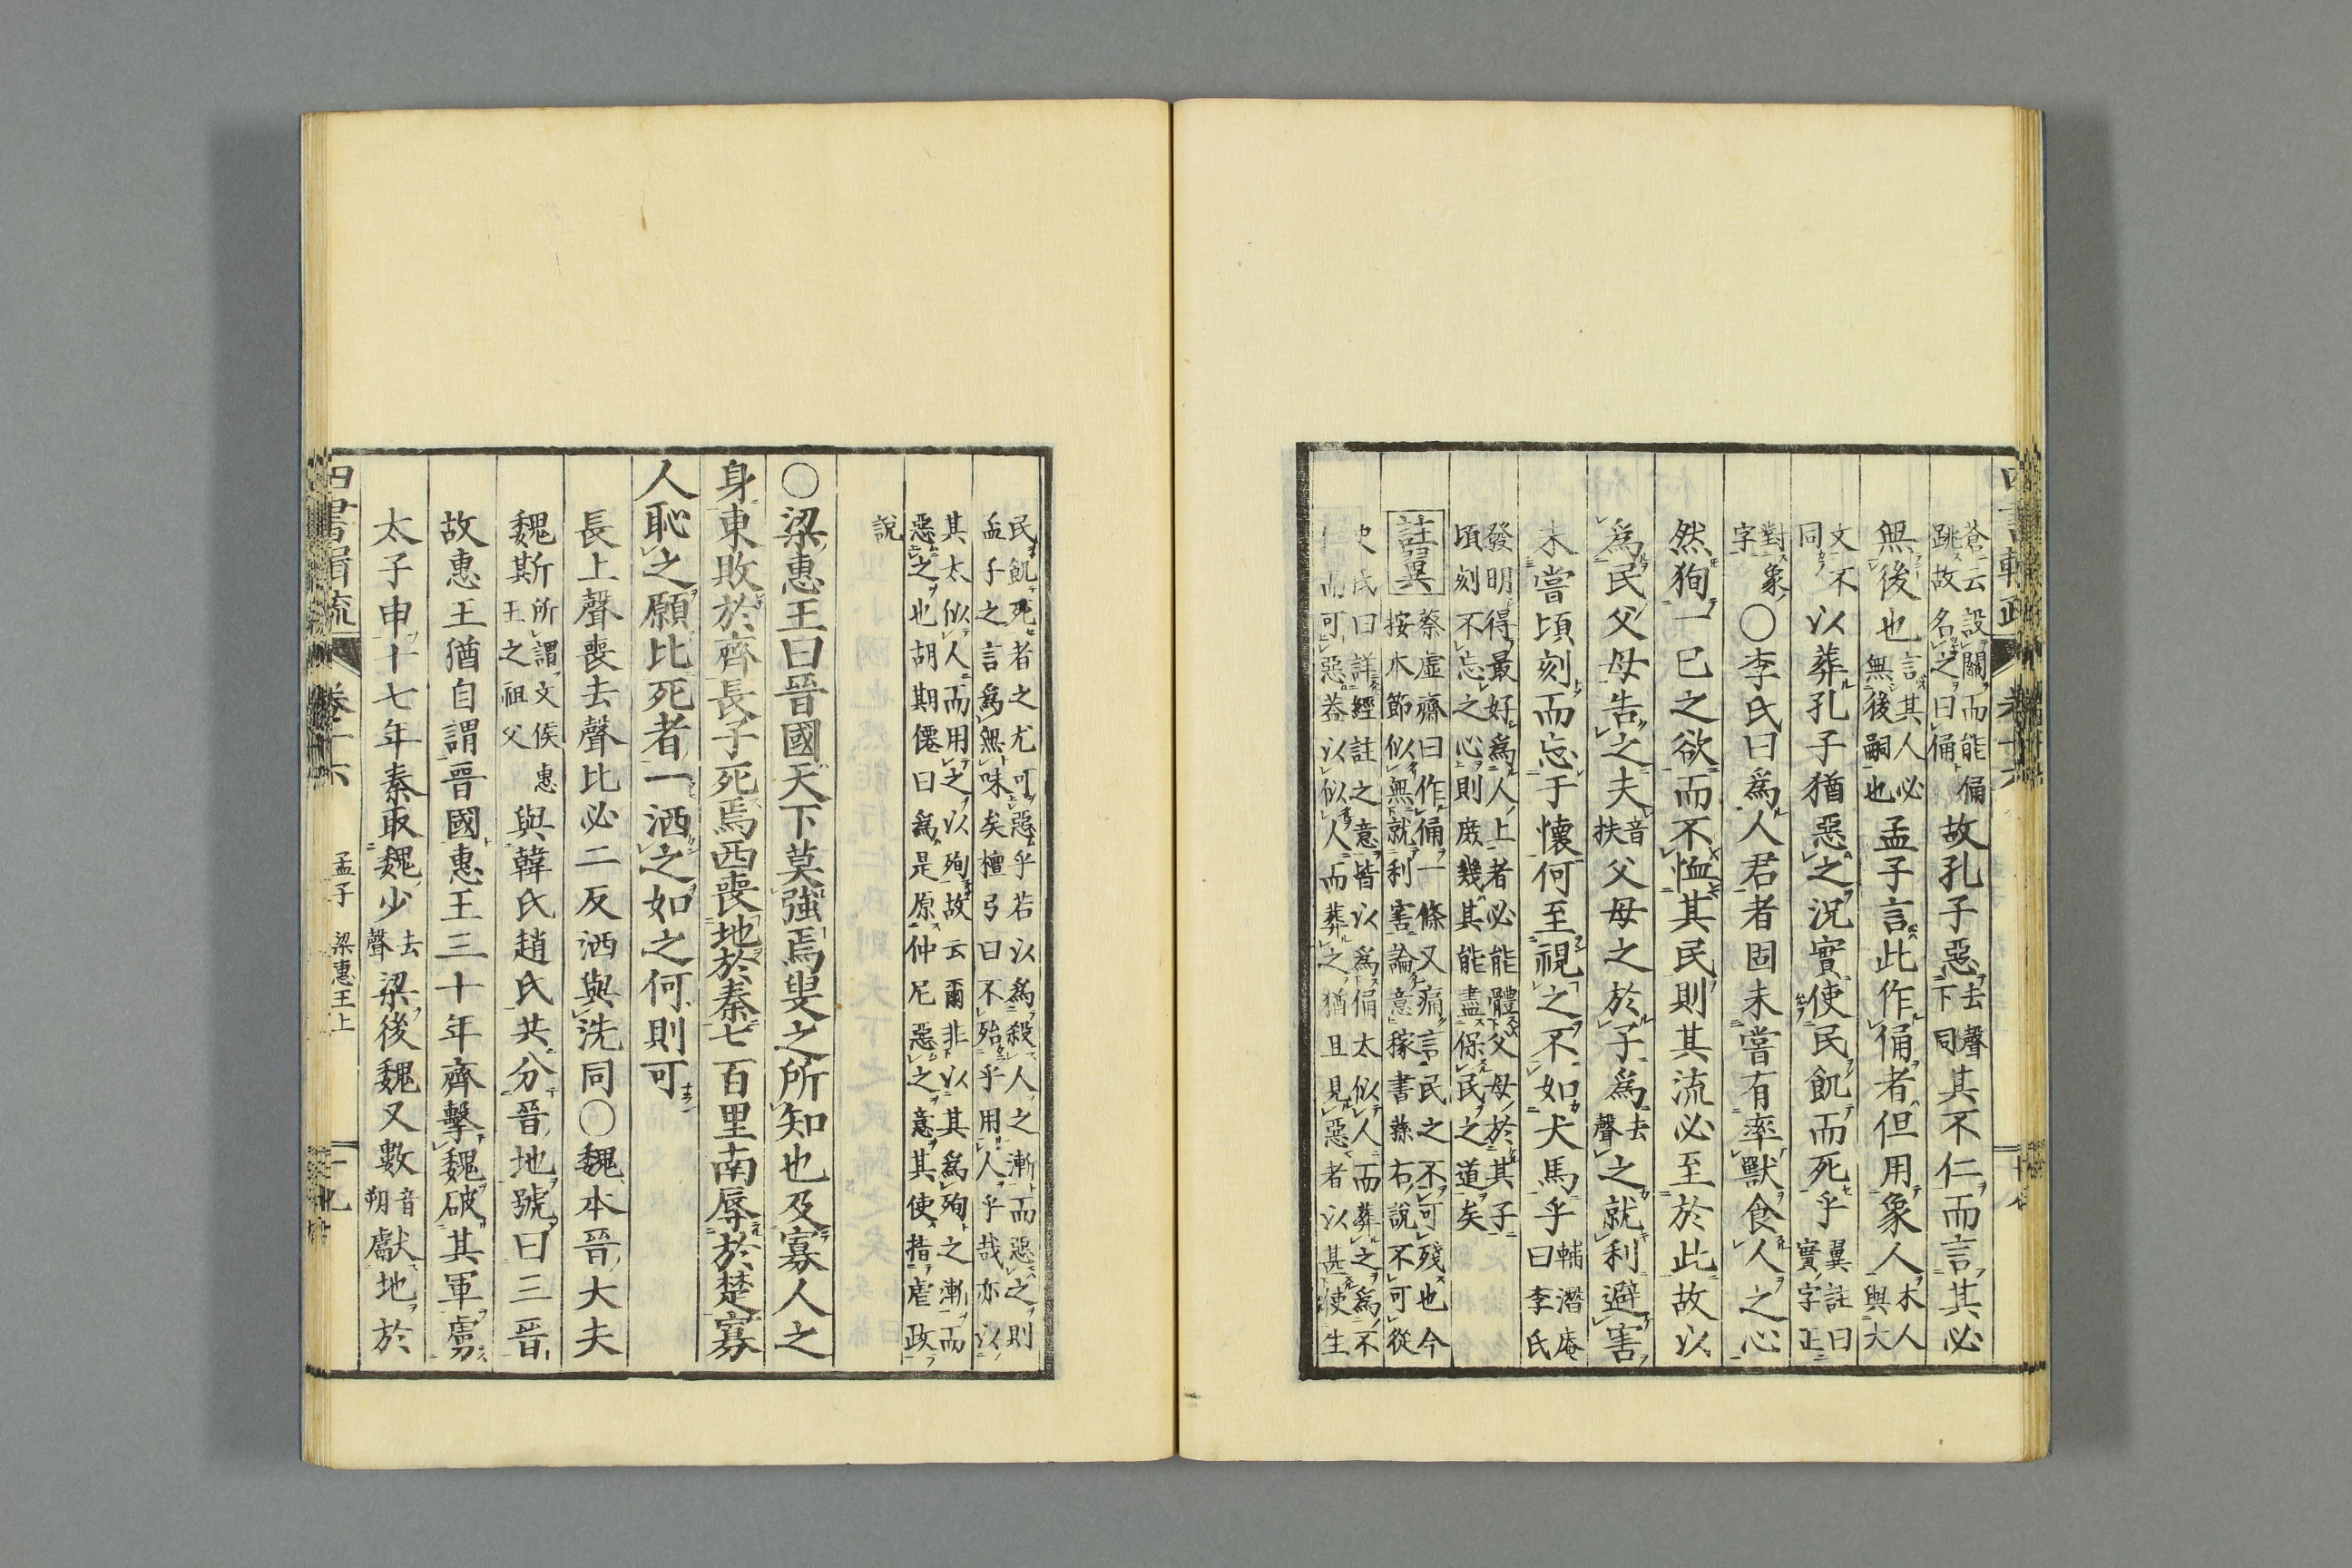 蒼云設關而能俑
跳故名之曰俑
故孔子惡
去聲
下同
其不仁而言其必
無後也
言其人必
無後嗣也
孟子言此作俑者但用象人
木人
與大
文不
同
以葬孔子猶惡之況實使民飢而死乎
翼註曰
實字正
對象
字
○李氏曰爲人君者固未嘗有率獸食人之心
然狥一已之欲而不恤其民則其流必至於此故以
爲民父母告之夫
音
扶
父母之於子爲
去
聲
之就利避害
未嘗頃刻而忘于懷何至視之不如犬馬乎
輔潛庵
曰李氏
發明得最好爲人上者必能體父母於其子
頃刻不忘之心則庶幾其能盡保民之道矣
註翼
蔡虛齋曰作俑一條又痛言民之不可殘也今
按本節似無就利害論意稼書蔡右說不可從
史氏曰詳經註之意皆以爲俑太似人而葬之爲不
仁而可惡葢以似人而葬之猶且見惡者以甚使生
民飢死者之尤可惡乎若以爲殺人之漸而惡之則
孟子之言爲無味矣檀弓曰不殆乎用人乎哉亦以
其太似人而用之以殉故云爾非以其爲殉之漸而
惡之也胡期僊曰爲是原仲尼惡之意其使指虐政
說
○梁惠王曰晉國天下莫強焉叟之所知也及寡人之
身東敗於齊長子死焉西喪地於秦七百里南辱於楚寡
人恥之願比死者一洒之如之何則可
長上聲喪去聲比必二反洒與洗同○魏本晉大夫
魏斯
所謂文侯惠
王之祖父
與韓氏趙氏共分晉地號曰三晉
故惠王猶自謂晉國惠王三十年齊擊魏破其軍虜
太子申十七年秦取魏少
去
聲
梁後魏又數
音
朔
獻地於
孟子 梁惠王上